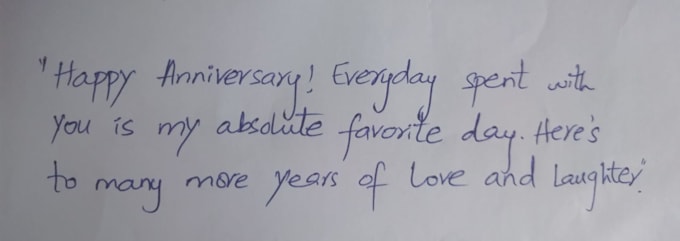 "Happy Anniversary! Everyday spent with
you is my absolute favorite day. Here's
to many more years of love and laughter."